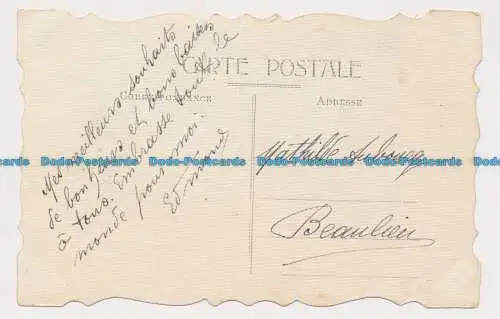 CARTE POSTALE
CORRESPONDANCE
ADRESSE
Mes meilleurs souhaits
de bon et bons baisers
à tous. Embrasse tout le
monde pour moi.
Edmond
Mathilde
Beaulieu
Data-Postcards Data-Postcards Data-Postcards Data-Postcards Data-Postcards